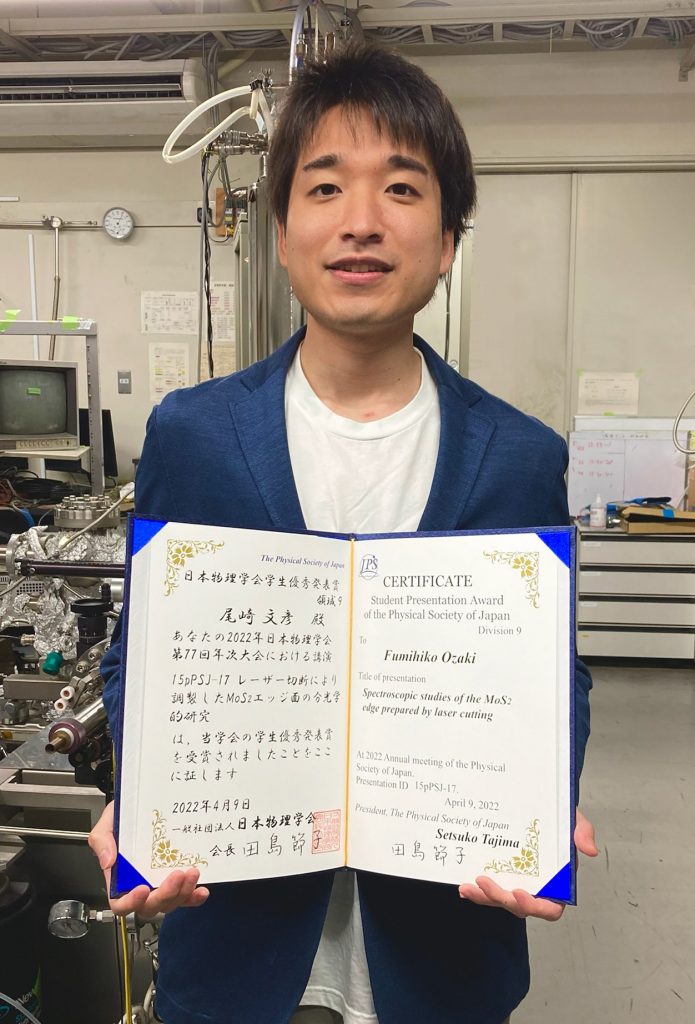 The Physical Society of Japan
日本物理学会学生優秀発表賞
領域9
尾崎 文彦 殿
あなたの2022年日本物理学会
第77回年次大会における講演
15pPSJ-17 レーザー切断により
調製したMoS2エッジ面の分光学
的研究
は、当学会の学生優秀発表賞
を受賞されましたことをここ
に証します
2022年4月9日
一般社団法人 日本物理学会
会長 田島 節子
JPS
CERTIFICATE
Student Presentation Award
of the Physical Society of Japan
Division 9
To
Fumihiko Ozaki
Title of presentation
Spectroscopic studies of the MoS2
edge prepared by laser cutting
At 2022 Annual meeting of the Physical
Society of Japan.
Presentation ID 15pPSJ-17.
April 9, 2022
President, The Physical Society of Japan
Setsuko Tajima
田島 節子